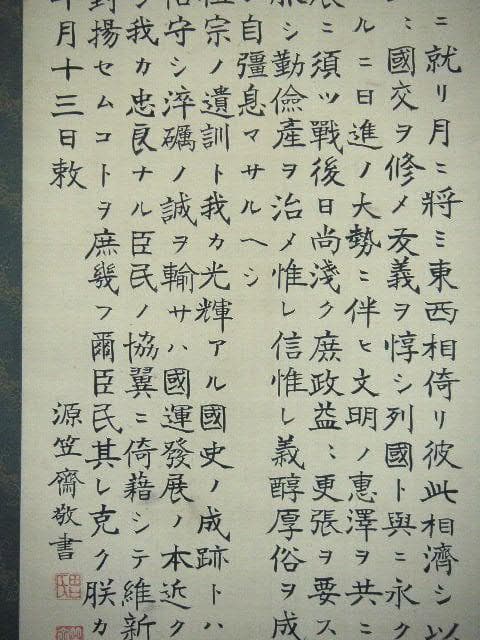 ニ就リ月ニ將ミ東西相倚リ彼此相濟シ以
〻國交ヲ修メ友義ヲ惇シ列國ト與ニ永ク
ルニ日進ノ大勢ニ伴ヒ文明ノ惠澤ヲ共ニ
展ニ須ツ戰後日尚淺ク庶政益〻更張ヲ要ス
シ勤儉產ヲ治メ惟レ信惟レ義醇厚俗ヲ成
自彊息マサルヘシ
祖宗ノ遺訓ト我カ光輝アル國史ノ成跡トハ
恪守シ淬礪ノ誠ヲ輸サハ國運發展ノ本近ク
我カ忠良ナル臣民ノ協翼ニ倚藉シテ維新
對揚セムコトヲ庶幾フ爾臣民其レ克ク朕カ
月十三日敕
源笠齋敬書